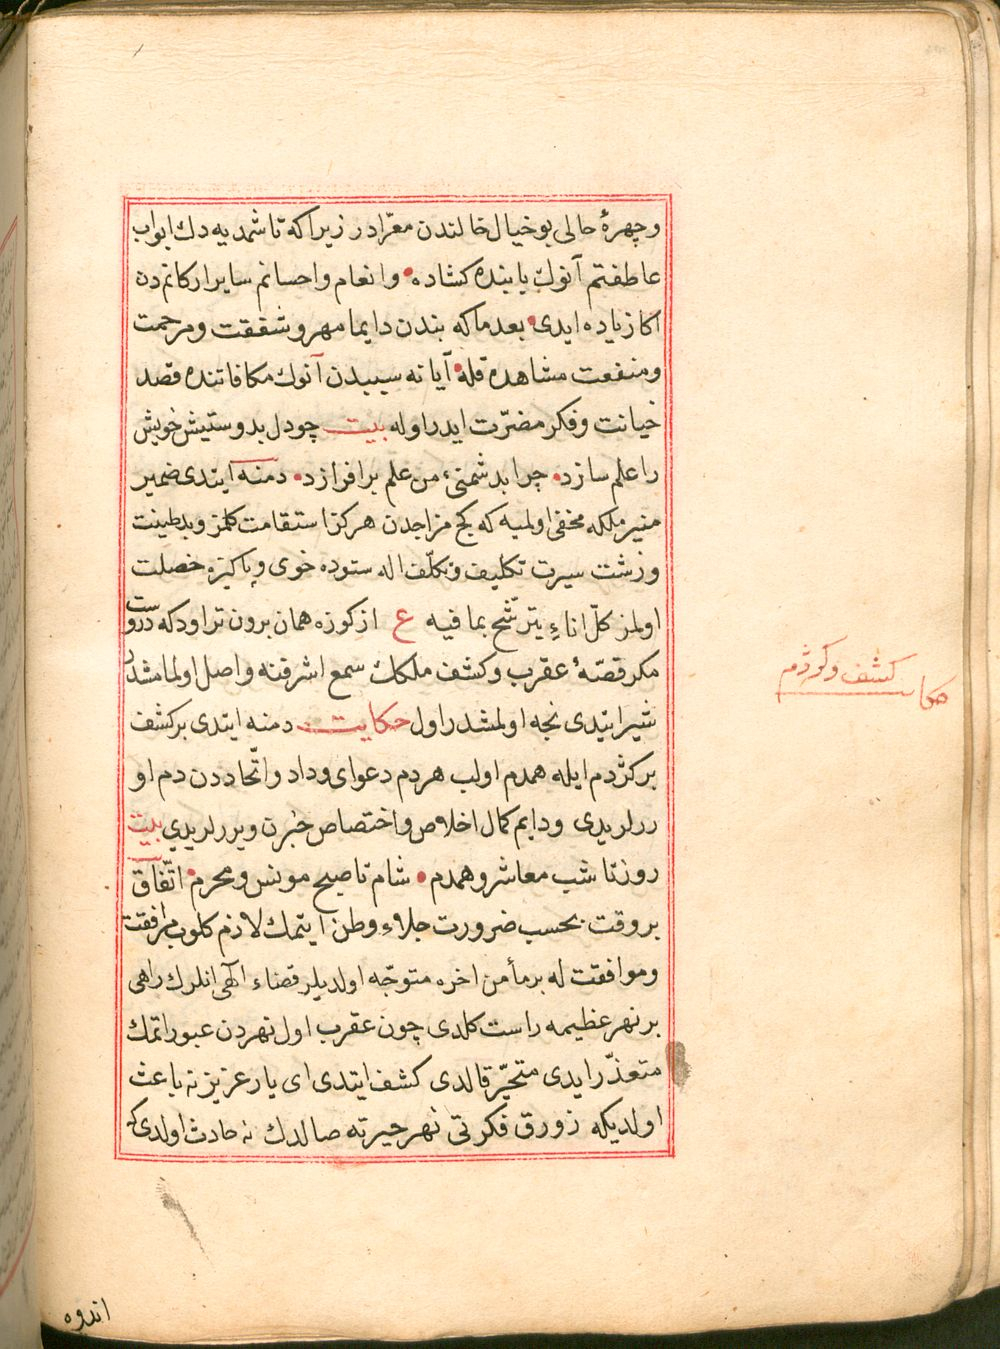 وچهرهٔ حالی بو خیال خالندن معرّادر زیرا که تا شمدیه دك ابواب
عاطفتم آنوك یابنده کشاده • وانعام واحسانم سایر ارکانم دن
اکا زیاده ایدی • بعدما که بندن دایما مهر و شفقت و مرحمت
ومنفعت مشاهده قله • آیا نه سببدن آنوك مکافاتنده قصد
خیانت و فکر مضرّت ایدر اوله بیت چو دل بدوستیش خویش
را علم سازد • چرا بدشمنیٔ من علم برافرازد • دمنه ایتدی ضمیر
منیر ملکه مخفی اولمیه که کج مزاجدن هرکز استقامت کلمز وبدطینت
وزشت سیرت تکلیف و تکلّف اله ستوده خوی و پاکیزه خصلت
اولمز کلّ اناءٍ یترشّح بما فیه ع از کوزه همان برون تراود که دروست
مکر قصّهٔ عقرب وکشف ملکك سمع اشرفنه واصل اولمامشدر
شیر ایتدی نجه اولمشدر اول حکایت دمنه ایتدی بر کشف
بر کژدم ایله همدم اولب هردم دعوای وداد واتّحاددن دم او
ررلریدی ودایم کمال اخلاص واختصاص خبرن ویررلریدی بیت
روز تا شب معاشر و همدم • شام تا صبح مونس و محرم • اتّفاق
بر وقت بحسب ضرورت جلاء وطن ایتمك لازم کلوب مرافقت
وموافقت له بر مأمن اخره متوجّه اولدیلر قضاء الهی انلرك راهی
بر نهر عظیمه راست کلدی چون عقرب اول نهردن عبور اتمك
متعذّر ایدی متحیّر قالدی کشف ایتدی ای یار عزیز نه باعث
اولدیکه زورق فکرتی نهر حیرته صالدك نه حادث اولدی که
حکایت کشف وکوژدم
اندوه